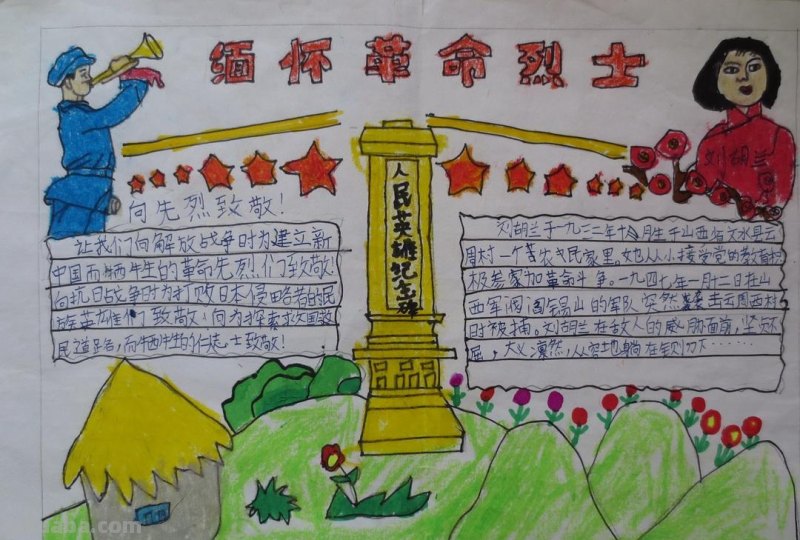 缅怀革命烈士
刘胡兰
人民英雄纪念碑
向先烈致敬！
让我们向解放战争时为建立新
中国而牺牲的革命先烈们致敬!
向抗日战争时为打败日本侵略者的民
族英雄们致敬！向为探索求国救
民道路，而牺牲的仁志士致敬！
刘胡兰于一九三二年十月生于山西省文水县云
周村一个贫农民家里。她从小接受党的教育
积极参加革命斗争。一九四七年一月十二日在山
西军阀阎锡山的军队突然袭击云周西村
时被捕。刘胡兰在敌人的威胁面前，坚贞不
屈，大义凛然，从容地躺在铡刀下……
aba.com